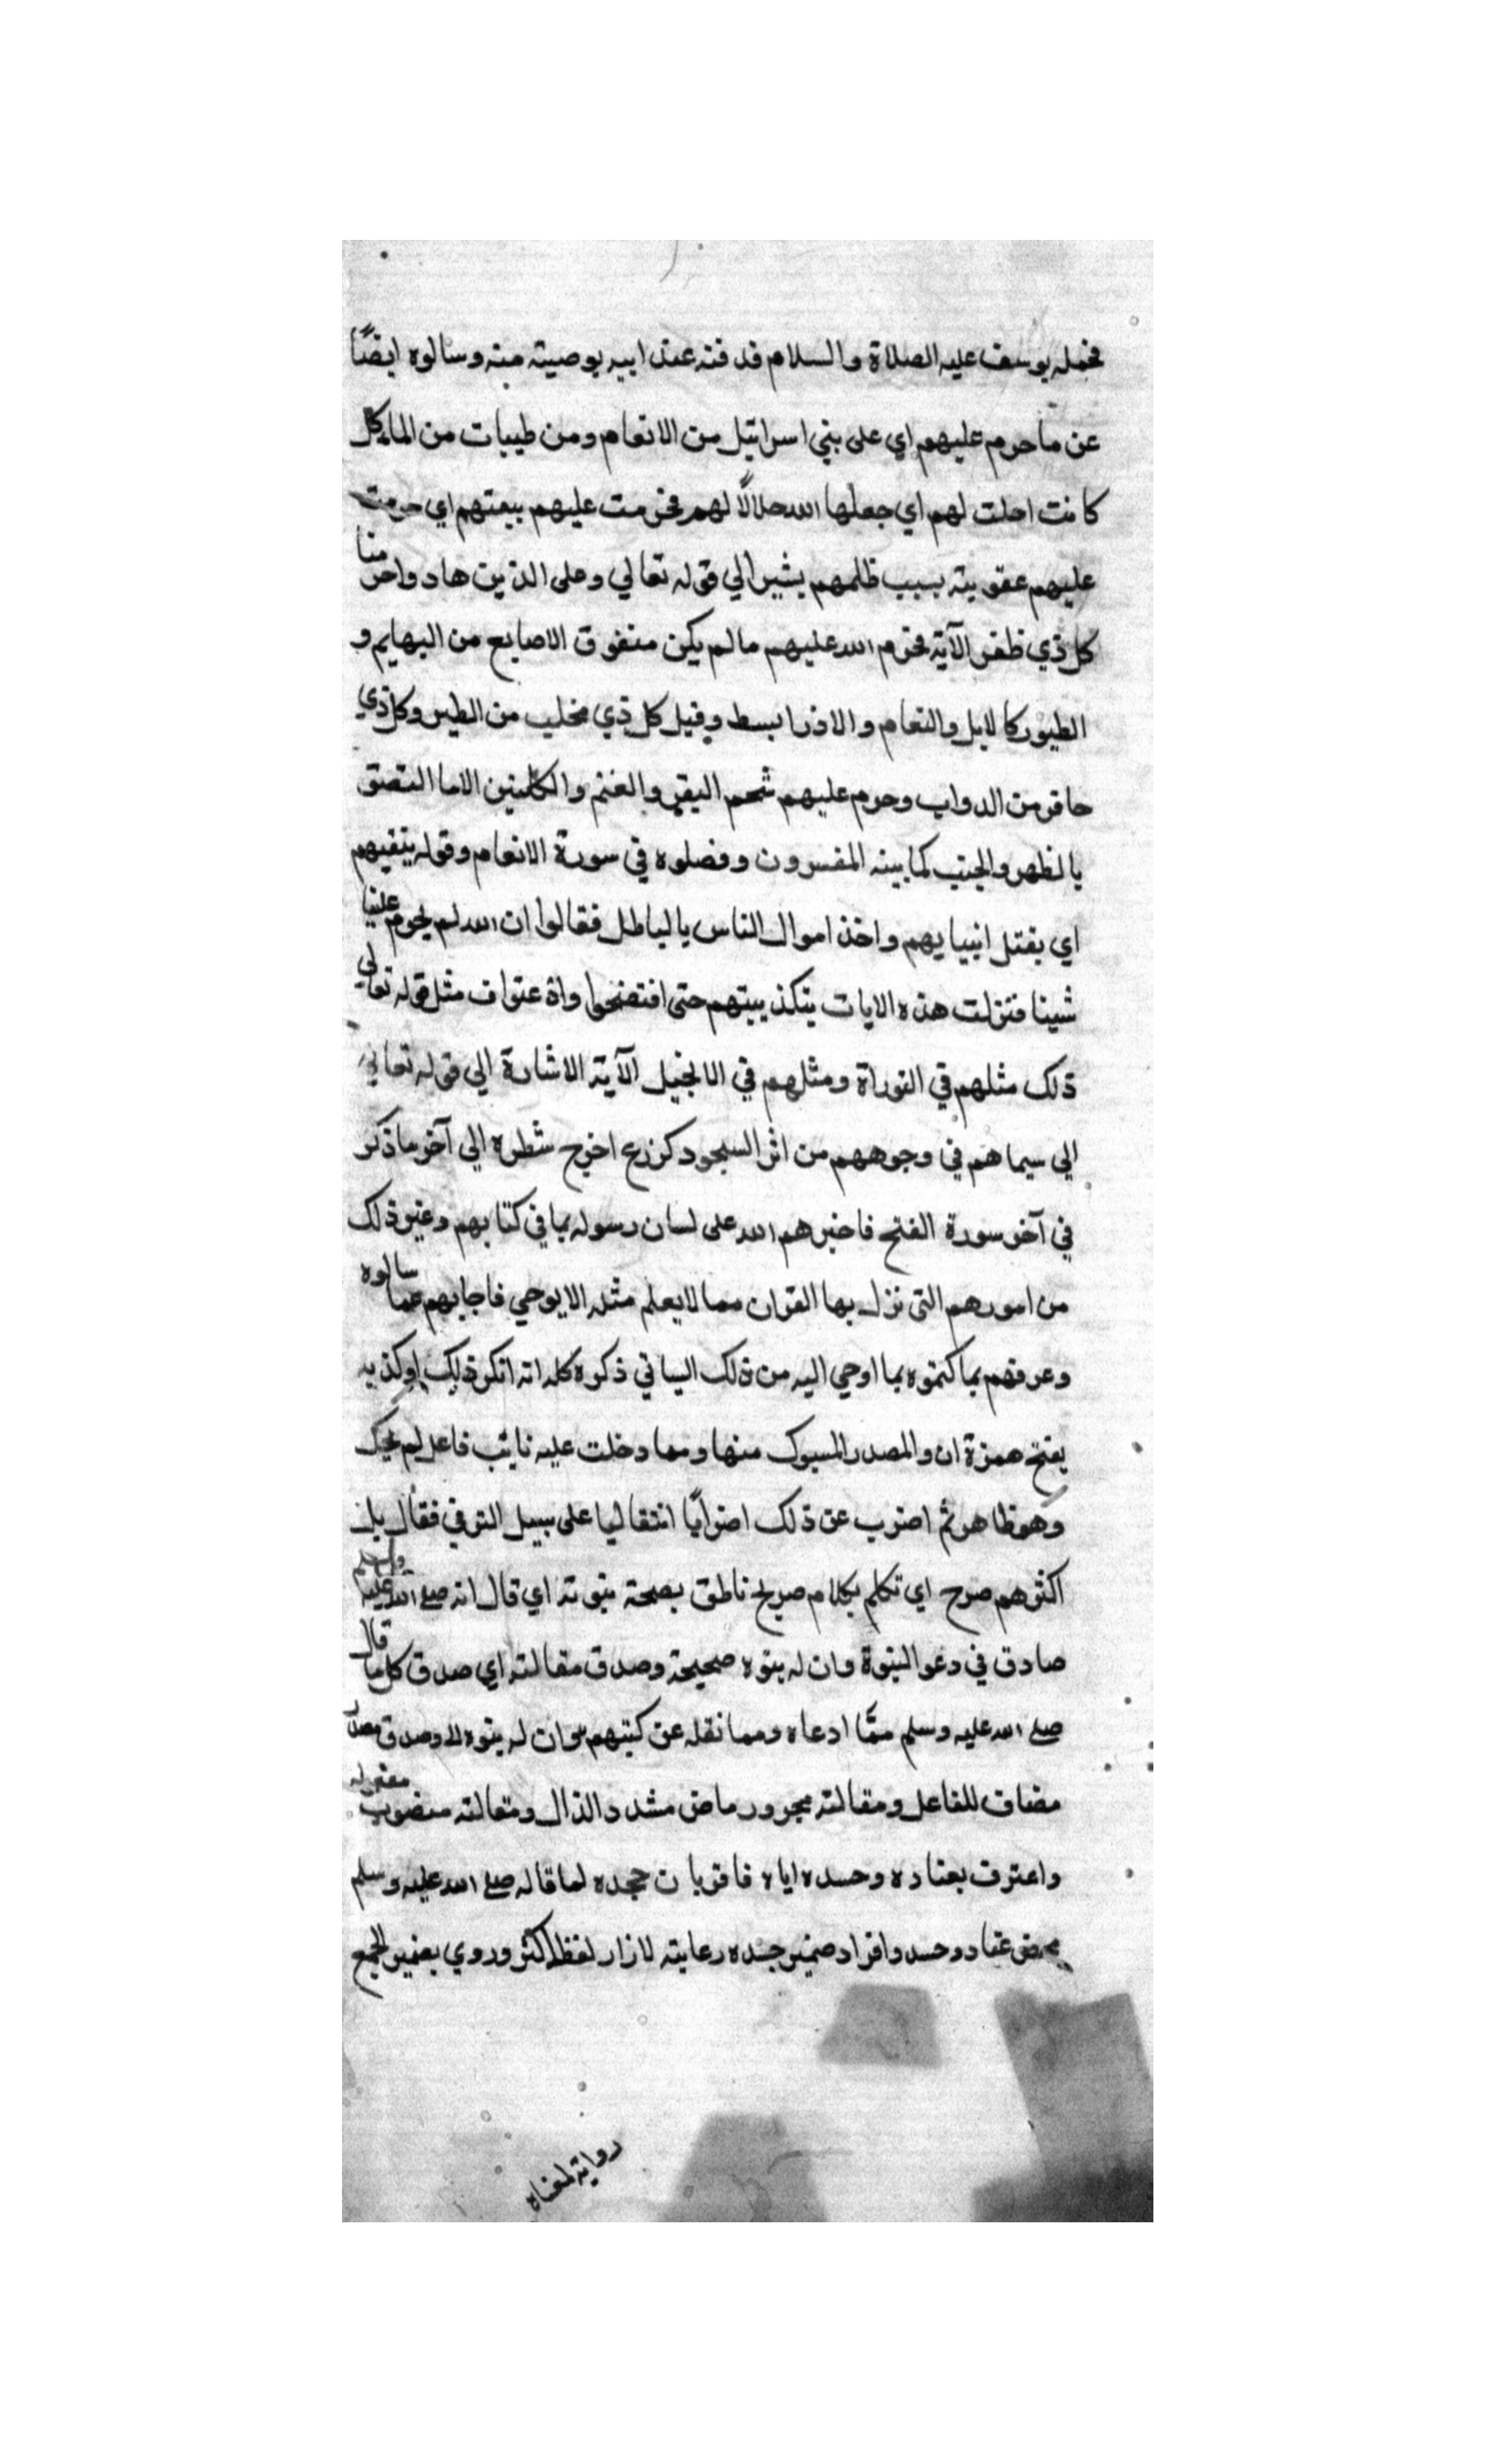 فحمله يوسف عليه الصلاة والسلام فدفنه عند ابيه بوصيته منه وسالوه ايضًا
عن ما حرم عليهم اي على بني اسرائيل من الانعام ومن طيبات من الماكل
كانت احلت لهم اي جعلها الله حلالًا لهم فحرمت عليهم ببغيهم اي حرمت
عليهم عقوبة بسبب ظلمهم يشير الي قوله تعالي وعلى الذين هادوا حرمنا
كل ذي ظفر الآية فحرم الله عليهم مالم يكن منفوق الاصابع من البهايم و
الطيور كالابل والنعام والاوز والبط وقيل كل ذي مخلب من الطير وكل ذي
حافر من الدواب وحرم عليهم شحم البقر والغنم والكليتين الا ما التصق
بالظهر والجنب كما بينه المفسرون وفصلوه في سورة الانعام وقوله ببغيهم
اي بقتل انبيايهم واخذ اموال الناس بالباطل فقالوا ان الله لم يحرم علينا
شيئا فنزلت هذه الايات بتكذيبهم حتى افتضحوا واعتراف مثل قوله تعالي
ذلك مثلهم في التوراة ومثلهم في الانجيل الآية الاشارة الي قوله تعالي
الي سيماهم في وجوههم من اثر السجود كزرع اخرج شطره الي آخر ما ذكر
في آخر سورة الفتح فاخبرهم الله على لسان رسوله بما في كتابهم وغير ذلك
من امورهم التي نزل بها القران مما لا يعلم مثله الا بوحي فاجابهم عما سالوه
وعرفهم بما كتموه بما اوحي اليه من ذلك في ذكره كله انه انكر ذلك او كذبه
بفتح همزة ان والمصدر المسبوك منها ومما دخلت عليه نايب فاعل لم يحك
وهو ظاهر ثم اضرب عن ذلك اضرابًا انتقاليا على سبيل الترقي فقال بل
اكثرهم صرح اي تكلم بكلام صريح ناطق بصحة نبوته اي قال انه صلى الله عليه وسلم
صادق في دعو النبوة وان له نبوه صحيحة وصدق مقالته اي صدق كل ما قال
صلى الله عليه وسلم ممّا ادعاه ومما نقله عن كتبهم وان له نبوه وصدق
مضاف للفاعل ومقالته مجرور ماض مشدد الدال ومقالته منصوب مفعوله
واعترف بعناده وحسده اياه فاقر بان جحده لما قاله صلى الله عليه وسلم
محض عناد وحسد وافراد ضمير حسده رعاية لافراد لفظ اكثر وروي بضمير الجمع
رواية لمعناه